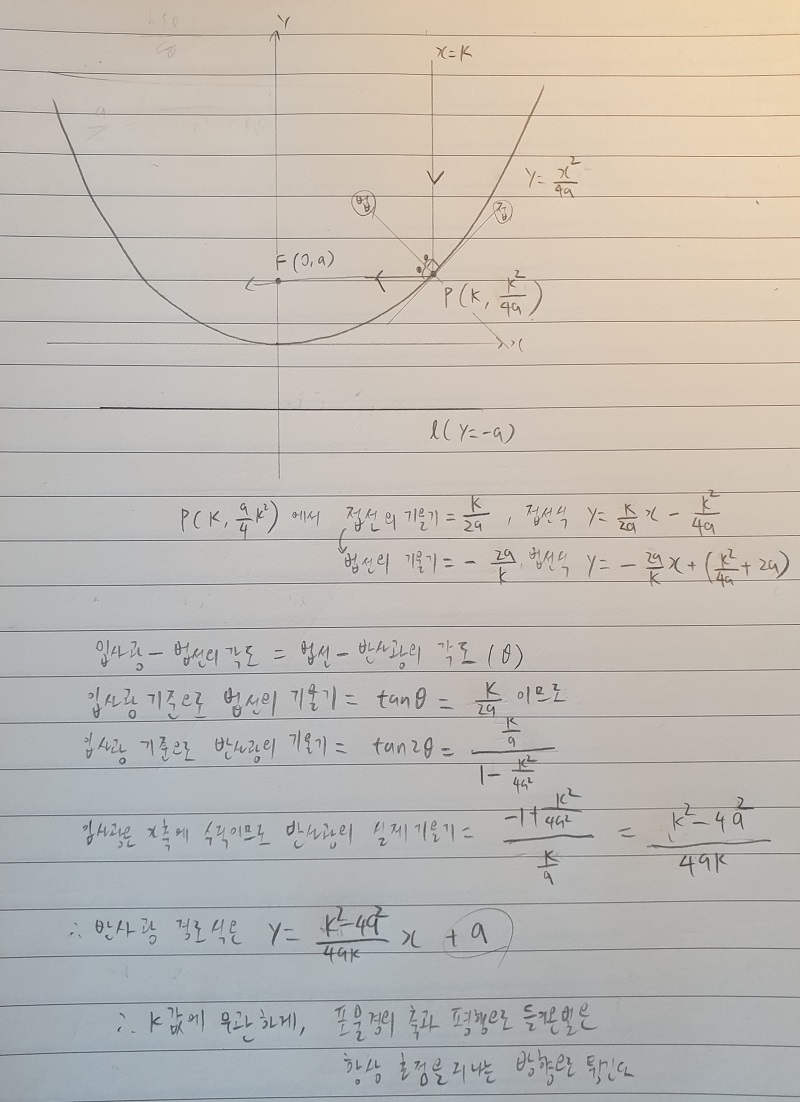 Y
x=k
Y=x²/4a
법
접
F(0,a)
P(k, k²/4a)
x
l(Y=-a)
P(k, a/4 k²) 에서 접선의 기울기 = k/2a , 접선식 Y= k/2a x - k²/4a
법선의 기울기 = - 2a/k , 법선식 Y= - 2a/k x + (k²/4a + 2a)
입사광 - 법선의 각도 = 법선 - 반사광의 각도 (θ)
입사광 기준으로 법선의 기울기 = tanθ = k/2a 이므로
입사광 기준으로 반사광의 기울기 = tan2θ = (k/a)/(1 - k²/4a²)
입사광은 x축에 수직이므로 반사광의 실제 기울기 = (-1 + k²/4a²)/(k/a) = (k²-4a²)/4ak
∴ 반사광 경로식은 Y= (k²-4a²)/4ak x + a
∴ k값에 무관하게, 포물경의 축과 평행으로 들어온 빛은
항상 초점을 지나는 방향으로 튕긴다